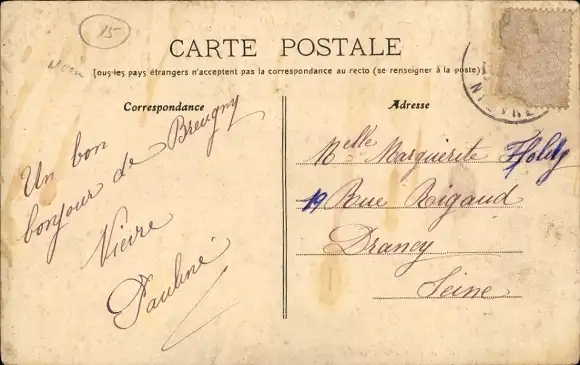 15
CARTE POSTALE
Tous les pays étrangers n'acceptent pas la correspondance au recto (se renseigner à la poste)
NIÈVRE
Correspondance
Un bon
bonjour de Breugny
Nièvre
Pauline
Adresse
Melle Marguerite
19 Rue Rigaud
Drancy
Seine